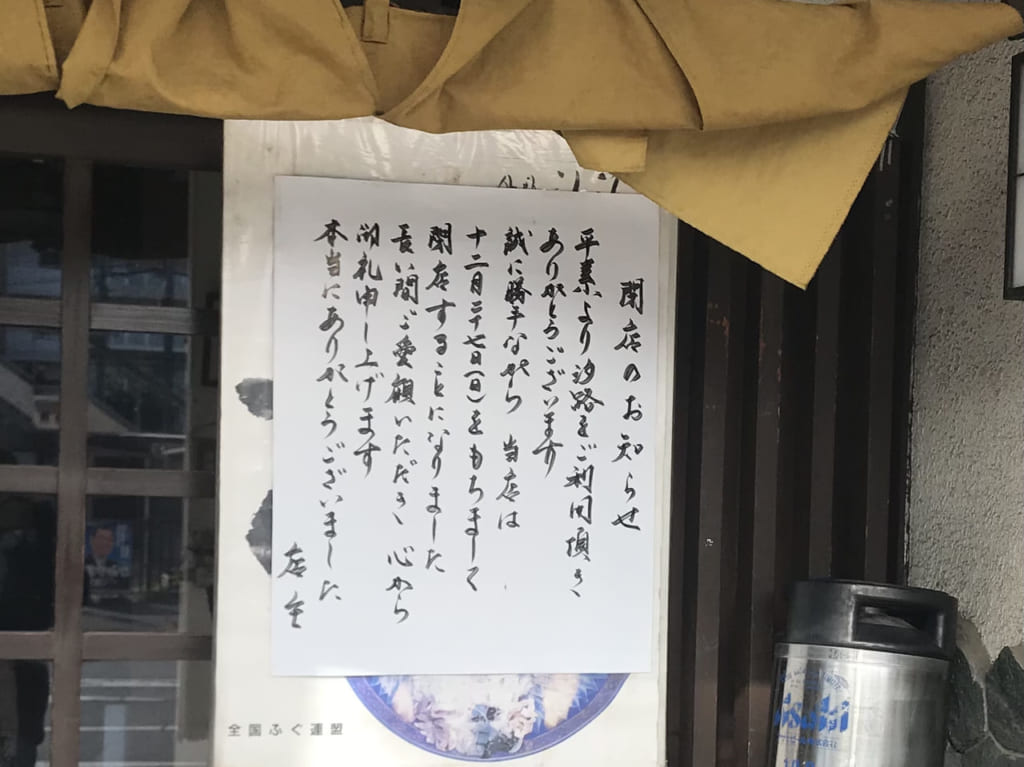 閉店のお知らせ
平素より汐路をご利用頂き
ありがとうございます
誠に勝手ながら 当店は
十二月二十七日(日)をもちまして
閉店することになりました
長い間ご愛顧いただき、心から
御礼申し上げます
本当にありがとうございました
店主
全国ふぐ連盟